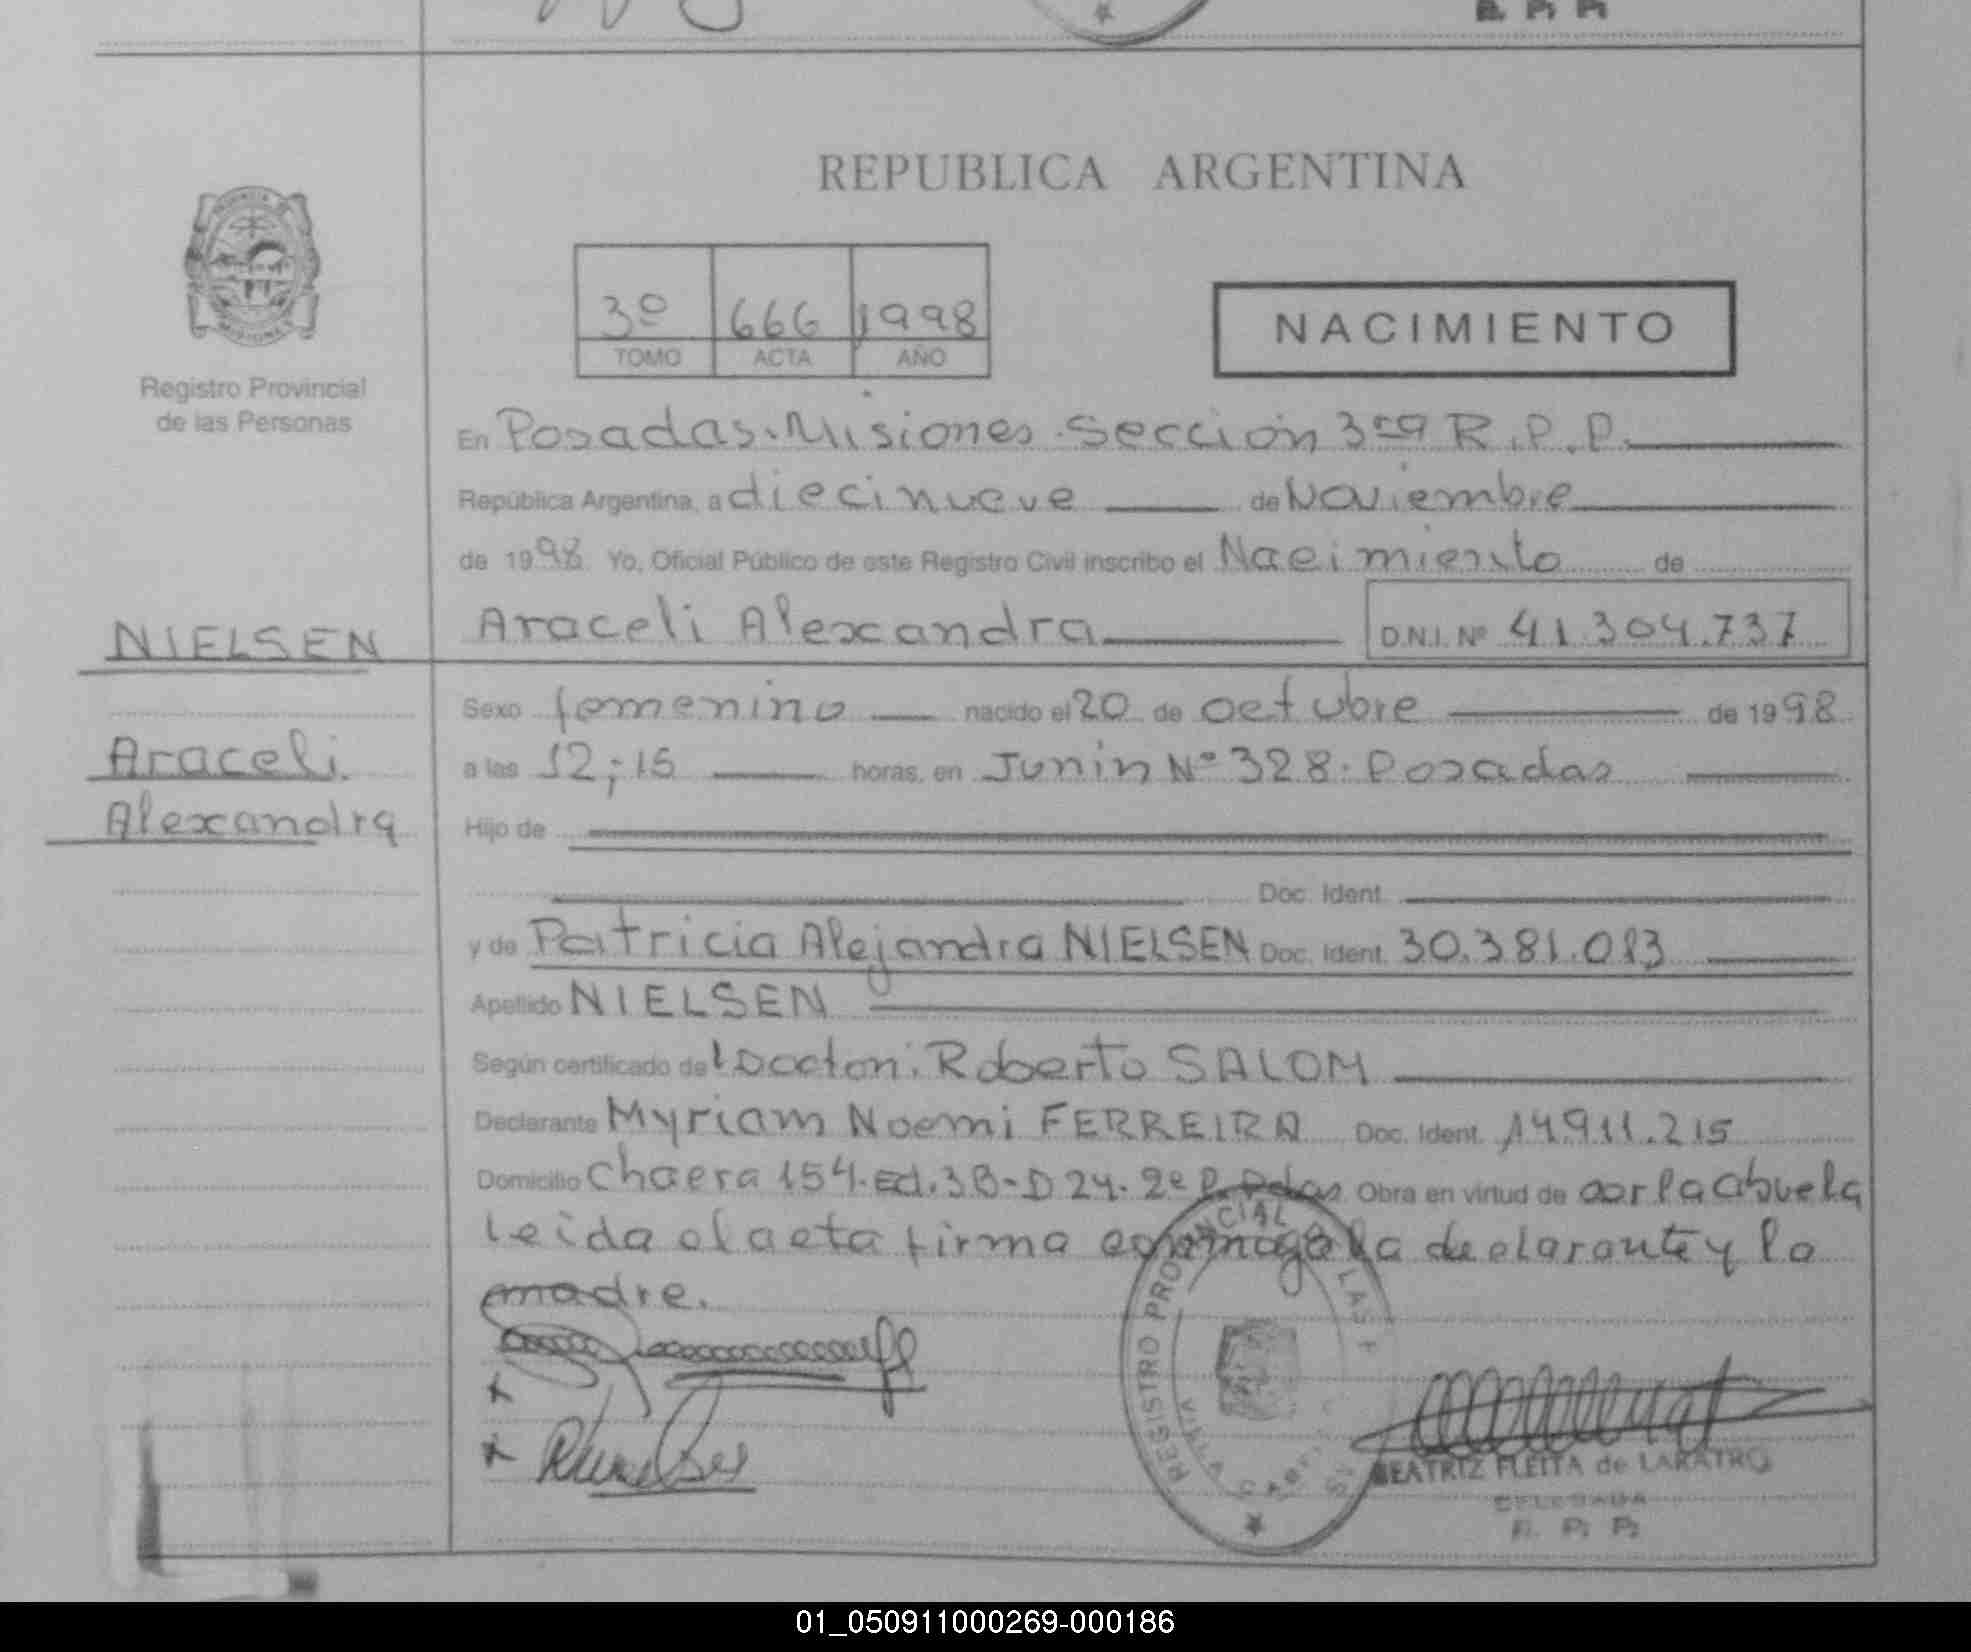 R. P. P.
REPUBLICA ARGENTINA
3º 666 1998
TOMO ACTA AÑO
NACIMIENTO
Registro Provincial
de las Personas
En Posadas. Misiones. Sección 3ra R.P.P.
República Argentina, a diecinueve de Noviembre
de 1998 Yo, Oficial Público de este Registro Civil inscribo el Nacimiento de
NIELSEN
Araceli Alexandra D.N.I. Nº 41.304.737
Sexo femenino nacido el 20 de octubre de 1998
Araceli
a las 12;15 horas, en Junín Nº 328. Posadas
Alexandra
Hijo de
Doc. Ident.
y de Patricia Alejandra NIELSEN Doc. Ident. 30.381.083
Apellido NIELSEN
Según certificado del Doctor: Roberto SALOM
Declarante Myriam Noemi FERREIRA Doc. Ident. 14.911.215
Domicilio Chacra 154. Ed. 3B-D 24. 2º P. Pdas Obra en virtud de ser la abuela
Leida el acta firma conmigo la declarante y la
madre.
REGISTRO PROVINCIAL DE LAS P
BEATRIZ FLEITA de LARATRO
DELEGADA
R. P. P.
01_050911000269-000186